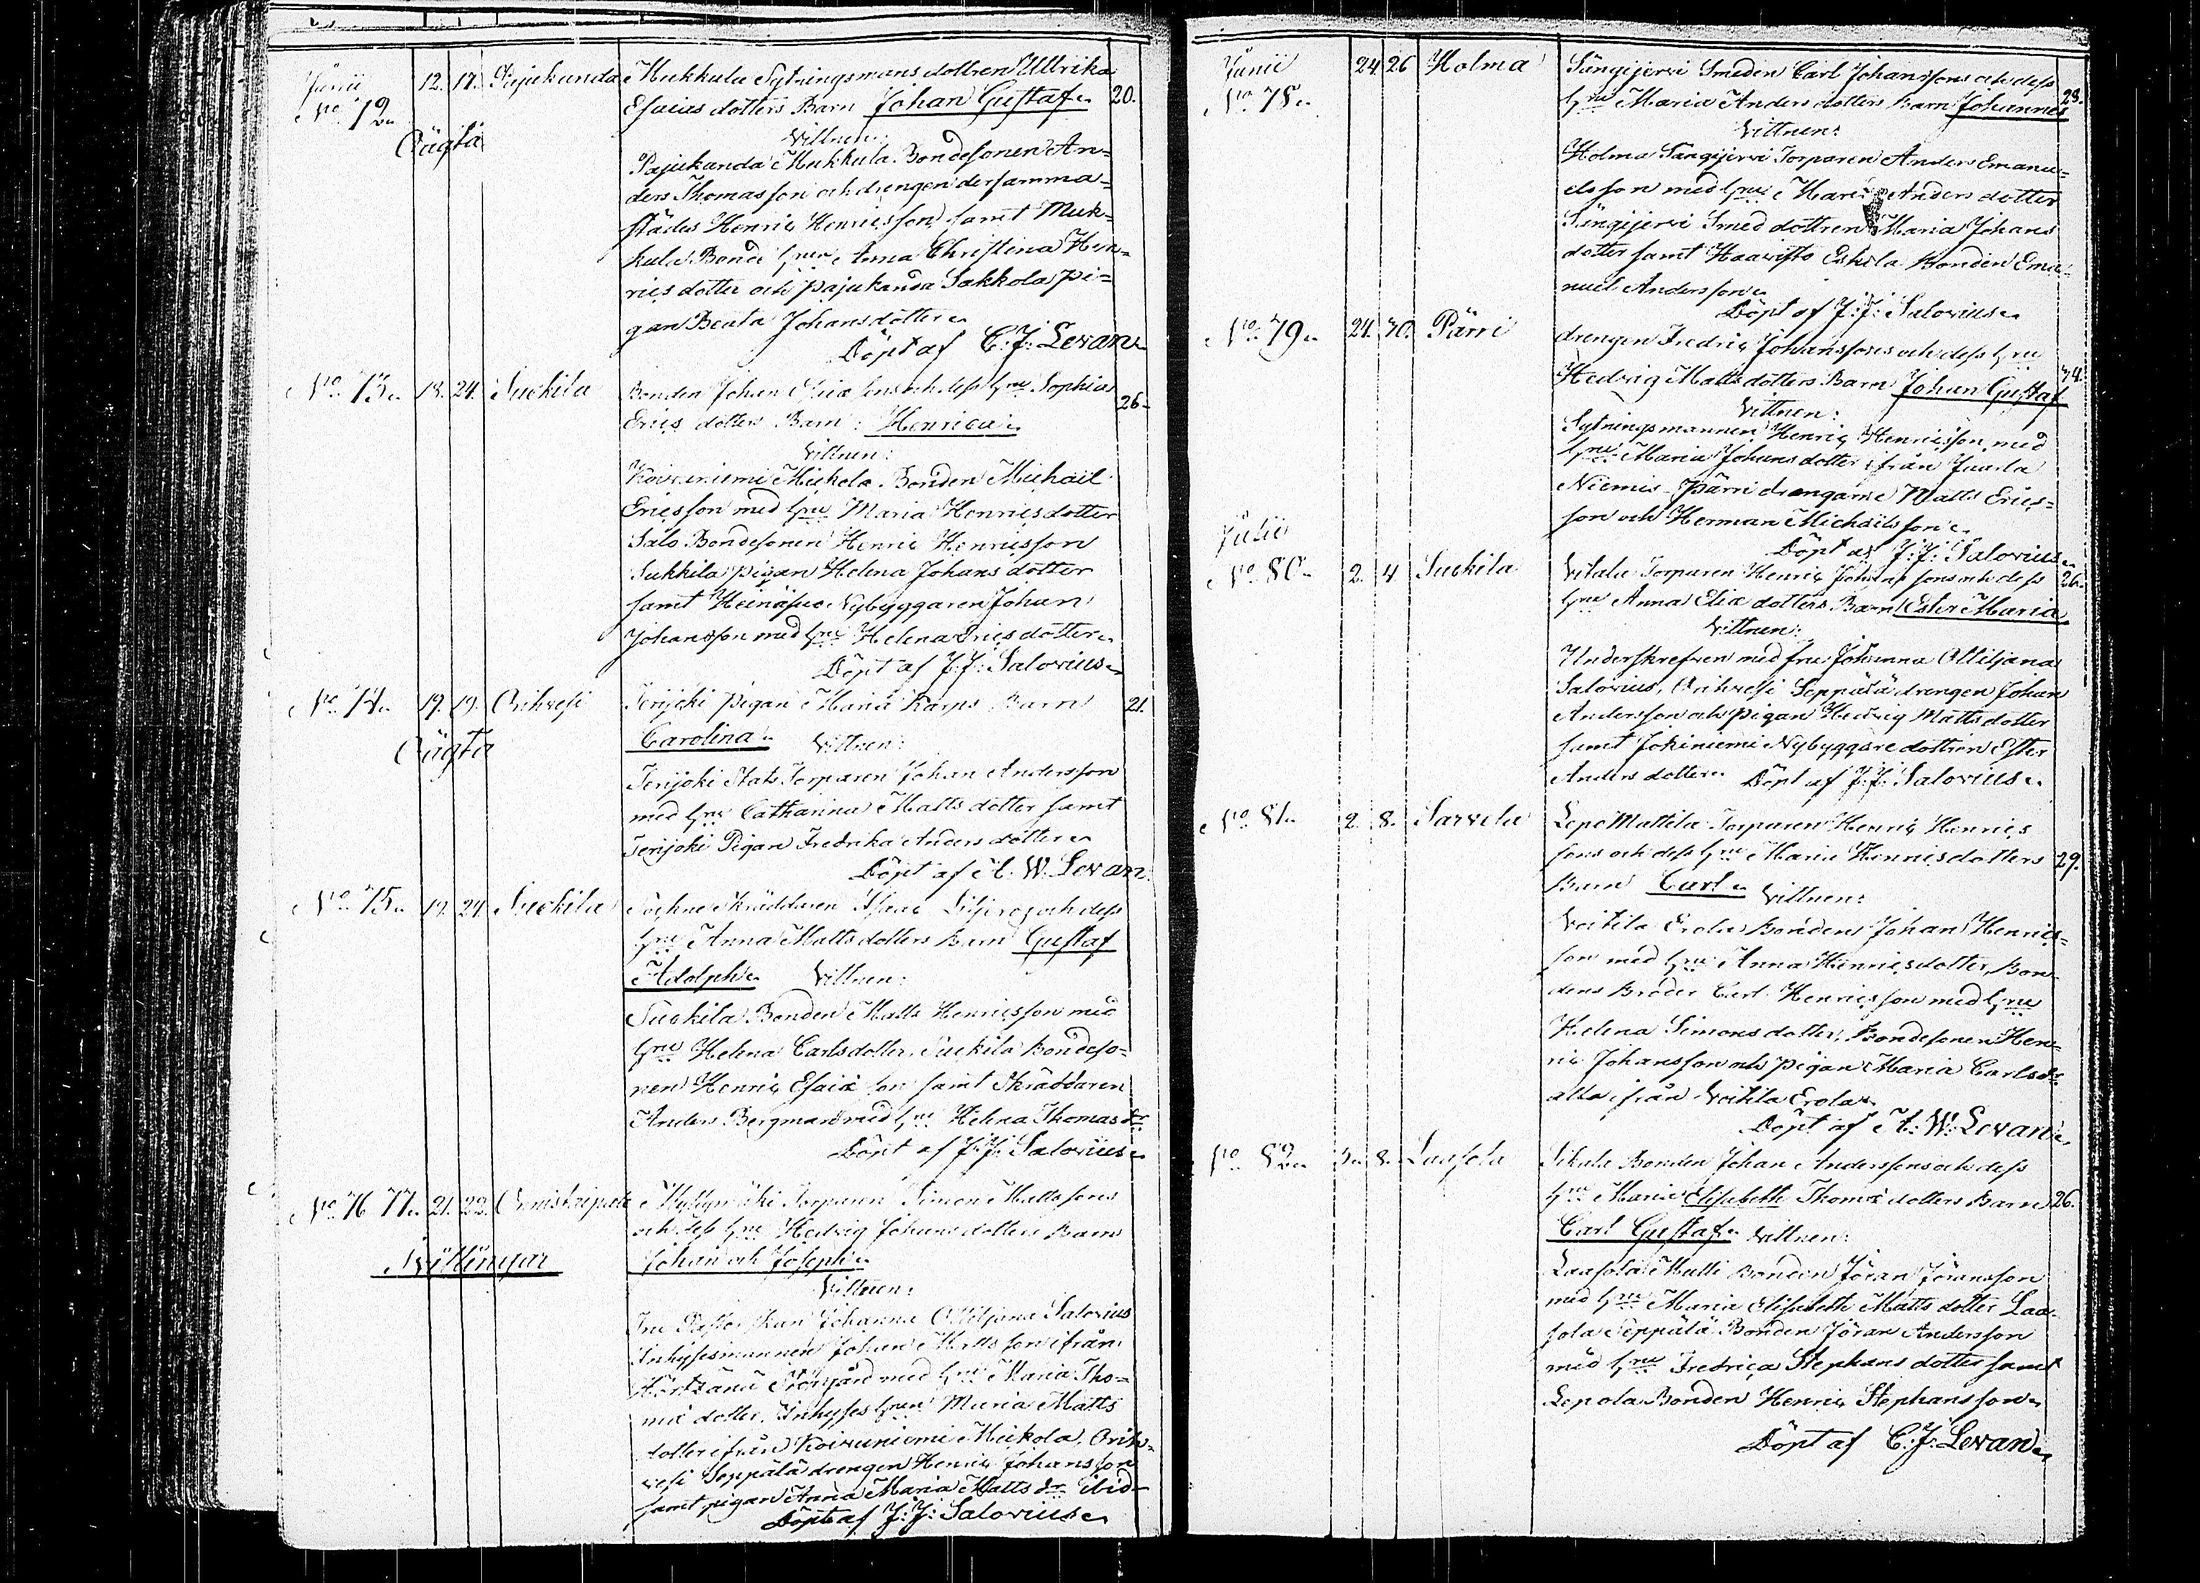 Junii 12. 17. Pajukanda Mukkula Sytningsmans dottren Ullrika
No 72. Esaias dotters Barn Johan Gustaf. 20.
Oägta Vittnen:
Pajukanda Mukkula Bondesonen An=
ders Thomasson och drengen dersamma=
städes Henric Henricsson, samt Muk=
kula Bonde hrun Anna Christina Hen=
rics dotter och Pajukanda Sakkola pi=
gan Beata Johansdotter.
Döpt af C. J. Levan.
No 73. 18. 24. Suckila Bonden Johan sons och dess hru Sophia
Erics dotters Barn: Henrica. 26.
Vittnen:
Koivuniemi Mickola Bonden Michaël
Ericsson med hru Maria Henricsdotter
Salo Bondesonen Henric Henricsson
Sukkila pigan Helena Johans dotter
samt Heinäsuo Nybyggaren Johan
Johansson med hru Helena Erics dotter.
Döpt af J. J. Salovius.
No 74. 19. 19. Orihvesi Terijoki pigan Maria Karps Barn 21.
Oägta Carolina. Vittnen:
Terijoki Stats Torparen Johan Andersson
med hru Catharina Matts dotter samt
Terijoki Pigan Fredrika Anders dotter.
Döpt af A. W. Levan.
No 75. 19. 24. Suckila Skräddaren Isaac och dess
hru Anna Matts dotters Barn Gustaf
Adolph. Vittnen:
Suckila Bonden Matts Henricsson med
hru Helena Carlsdotter, Suckila Bondeso=
nen Henric Esaiæ son samt Skräddaren
Anders Bergman med hru Helena Thomas dr
Döpt af J. J. Salovius.
No 76 77. 21. 22. Torparen Simon Mattssons
och dess hru Hedvig Johans dotters Barn
Tvillingar Johan och Joseph.
Vittnen:
Fru Pastorskan Johanna Ottiljana Salovius
Inhysesmannen Johan Mattsson ifrån
Storgård med hru Maria Tho=
mæ dotter, Inhyses hrun Maria Matts
dotter ifrån Koivuniemi Mickola, Orih=
vesi Seppälä drengen Henric Johansson
samt pigan Anna Maria Matts dr ibid
Döpt af J. J. Salovius.
Junii 24 26 Holma Sängijervi Smeden Carl Johanssons och dess
No 78. hru Maria Anders dotters Barn Johannes 28.
Vittnen:
Holma Sängijervi Torparen Anders Emanu=
elsson med hru Maria Anders dotter
Sängijervi Smed dottren Maria Johans
dotter samt Haavisto Eskola Bonden Ema=
nuel Andersson.
Döpt af J. J. Salovius.
No 79. 24. 30. Pärri drengen Fredric Johanssons och dess hru
Hedvig Matts dotters Barn Johan Gustaf 34.
Vittnen:
Sytningsmannen Henric Henricsson med
hru Maria Johans dotter ifrån
Niemis Pärri drengarne Matts Erics=
son och Herman Michaëls son.
Döpt af J. J. Salovius.
Julii
No 80. 2. 4 Suckila Torparen Henric sons och dess 26.
hru Anna Eliæ dotters Barn Ester Maria
Vittnen:
Underskrefven med fru Johanna Ottiljana
Salovius, Orihvesi Seppälä drengen Johan
Andersson och pigan Hedvig Matts dotter
samt Jokiniemi Nybyggare dottren Ester
Anders dotter. Döpt af J. J. Salovius.
No 81. 2. 8. Sarvela Lepo Mattila Torparen Henric Henrics
sons och dess hru Maria Henricsdotters 29.
Barn Carl. Vittnen:
Voitila Erola Bonden Johan Henrics=
son med hru Anna Henricsdotter, Bon=
dens Broder Carl Henricsson med hru
Helena Simons dotter, Bondesonen Hen=
ric Johansson och pigan Maria Carls dr
alla ifrån Voitila Erola.
Döpt af A. W. Levan.
No 82. 3. 8. Laasola Sikala Bonden Johan Anderssons och dess
hru Maria Elisabeth Thomæ dotters Barn 26.
Carl Gustaf. Vittnen:
Laasola Multi Bonden Jöran Jöransson
med hru Maria Elisabeth Matts dotter Laa=
sola Seppälä Bonden Jöran Andersson
med hru Fredrica Stephans dotter samt
Lepola Bonden Henric Stephansson.
Döpt af C. J. Levan.